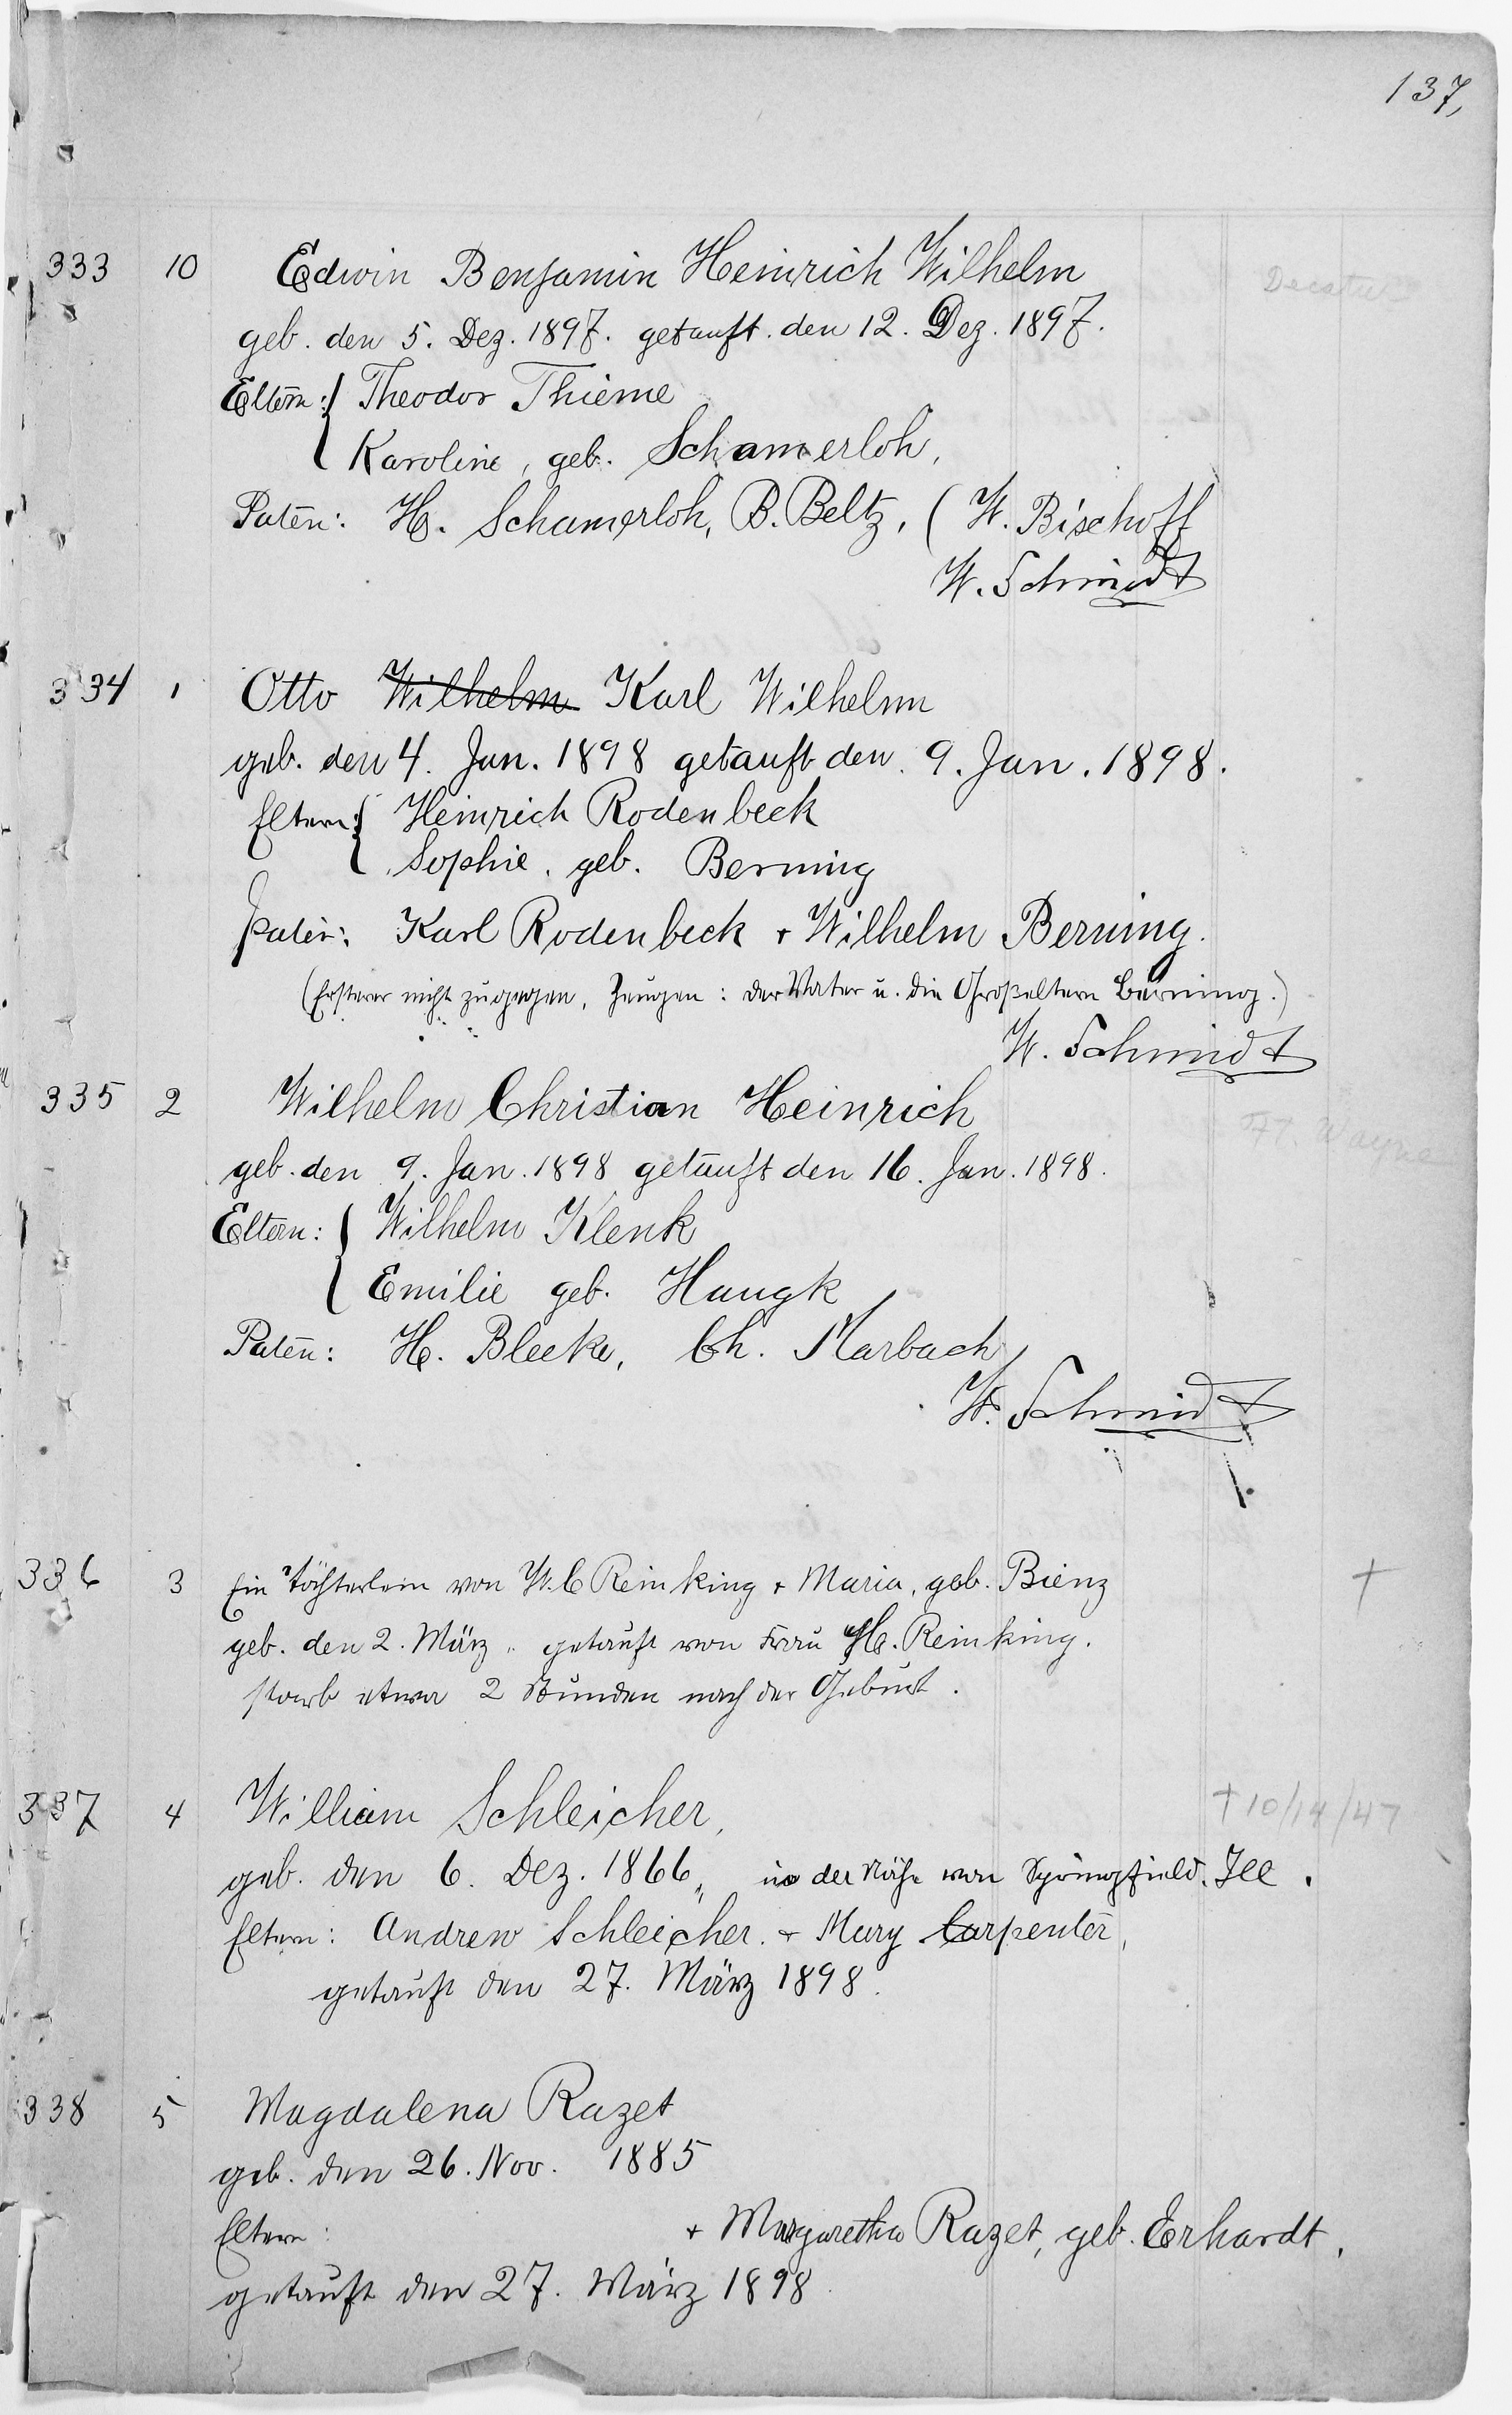 137,
333 10 Edwin Benjamin Heinrich Wilhelm Decatur
geb. den 5. Dez. 1897. getauft. den 12. Dez. 1897.
Eltern: { Theodor Thieme
Karoline, geb. Schamerloh,
Paten: H. Schamerloh, B. Beltz, ( W. Bischoff
W. Schmidt
334 1 Otto Wilhelm Karl Wilhelm
geb. den 4. Jan. 1898 getauft den 9. Jan. 1898.
Eltern: { Heinrich Rodenbeck
Sophie, geb. Berning
Paten: Karl Rodenbeck + Wilhelm Berning.
(Ersterer nicht zugegen, Zeugen: der Vater u. die Großeltern Berning.)
W. Schmidt
335 2 Wilhelm Christian Heinrich Ft. Wayne
geb. den 9. Jan. 1898 getauft den 16. Jan. 1898.
Eltern: { Wilhelm Klenk
Emilie geb. Haugk
Paten: H. Bleeke, Ch. Marbach
W. Schmidt
336 3 Ein Töchterlein von W. C Reinking + Maria, geb. Bienz †
geb. den 2. März " getauft von Frau H. Reinking.
starb etwa 2 Stunden nach der Geburt.
337 4 William Schleicher, † 10/14/47
geb. den 6. Dez. 1866, in der Nähe von Springfield. Ill.
Eltern: Andrew Schleicher. + Mary Carpenter,
getauft den 27. März 1898.
338 5 Magdalena Razet
geb. den 26. Nov. 1885
Eltern: + Margaretha Razet, geb. Erhardt,
getauft den 27. März 1898